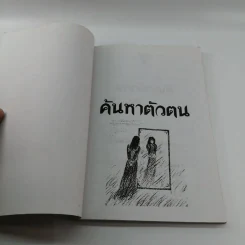 ค้นหาตัวตน